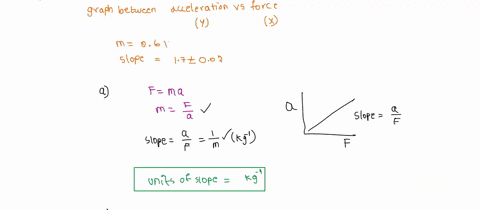 graph between acceleration vs force
(y) (x)
m = 0.61
slope = 1.7 ± 0.02
a) F = ma
m = F/a ✓
slope = a/F = 1/m ✓ (kg⁻¹)
units of slope = kg⁻¹
a
slope = a/F
F